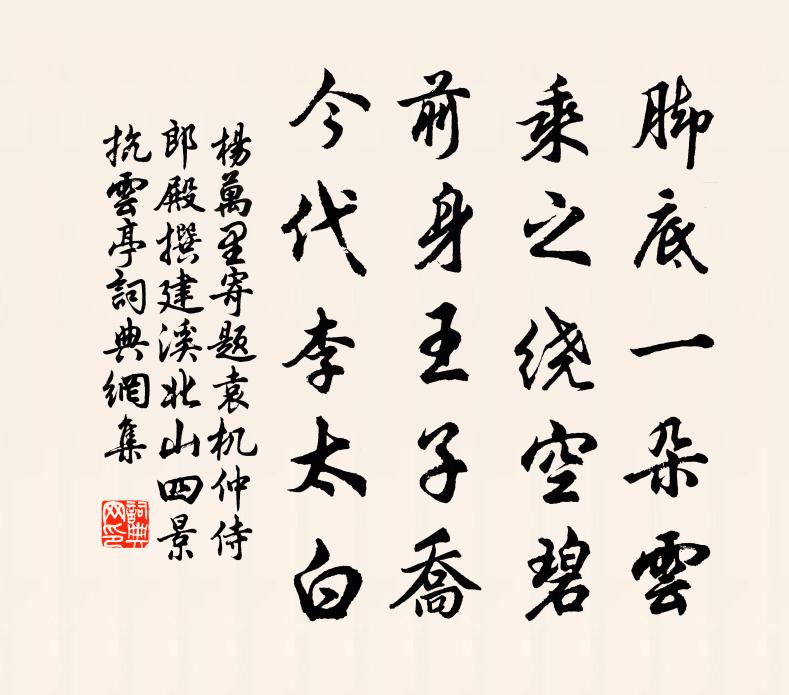 脚底一朵雲
乘之绕空碧
前身王子喬
今代李太白
楊萬里寄题袁机仲侍
郎殿撰建溪北山四景
抗雲亭詞典網集
詞典网印